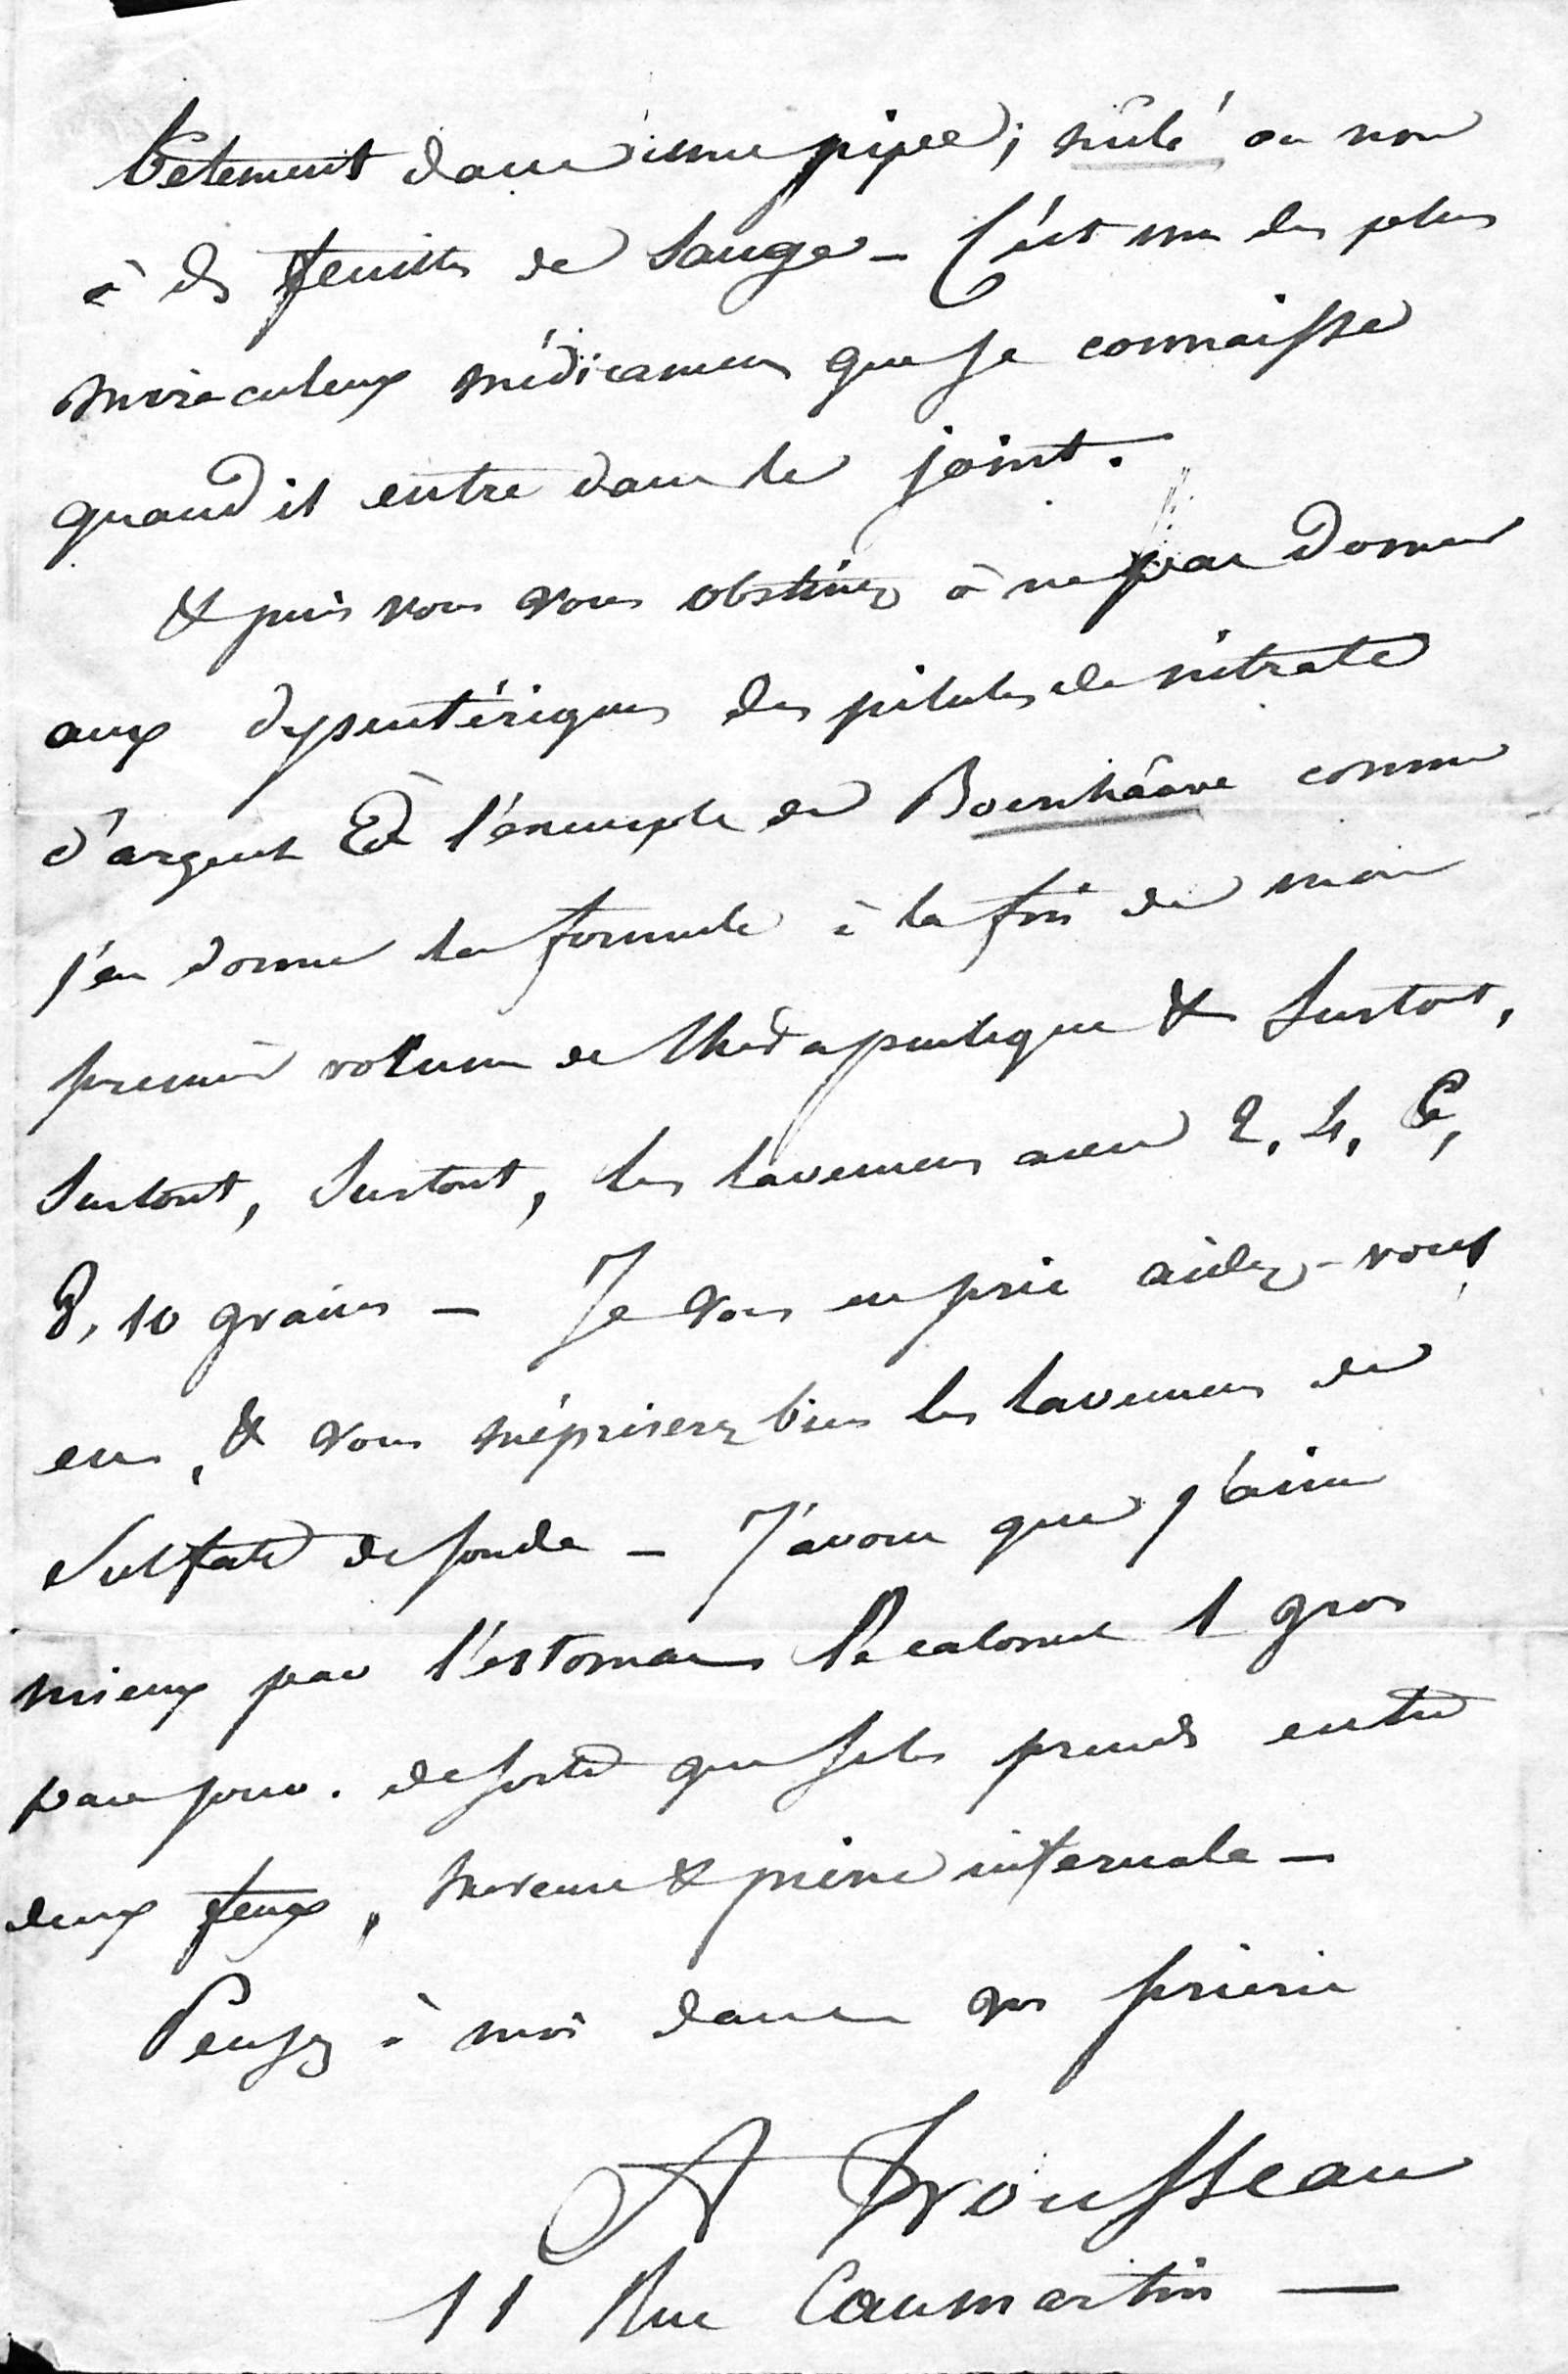 bêtement dans une pipe, mêlé ou non
à des feuilles de sauge — C'est un des plus
miraculeux médicamens que je connaisse
quand il entre dans le joint.
& puis vous vous obstinez à ne pas donner
aux dyssentériques des pilules de nitrate
d'argent à l'exemple de Boerhâave comme
j'en donne la formule à la fin de mon
premier volume de thérapeutique & surtout,
surtout, surtout, les lavemens avec 2, 4, 6,
8, 10 grains — Je vous en prie aidez-vous
en, & vous mépriserez bien les lavemens de
sulfate de soude — J'avoue que j'aime
mieux par l'estomac le calomel 1 gros
par jour. de sorte que je les prends entre
deux feux, mercure & pierre infernale —
Pensez à moi dans vos prières
A Trousseau
11 Rue Caumartin —